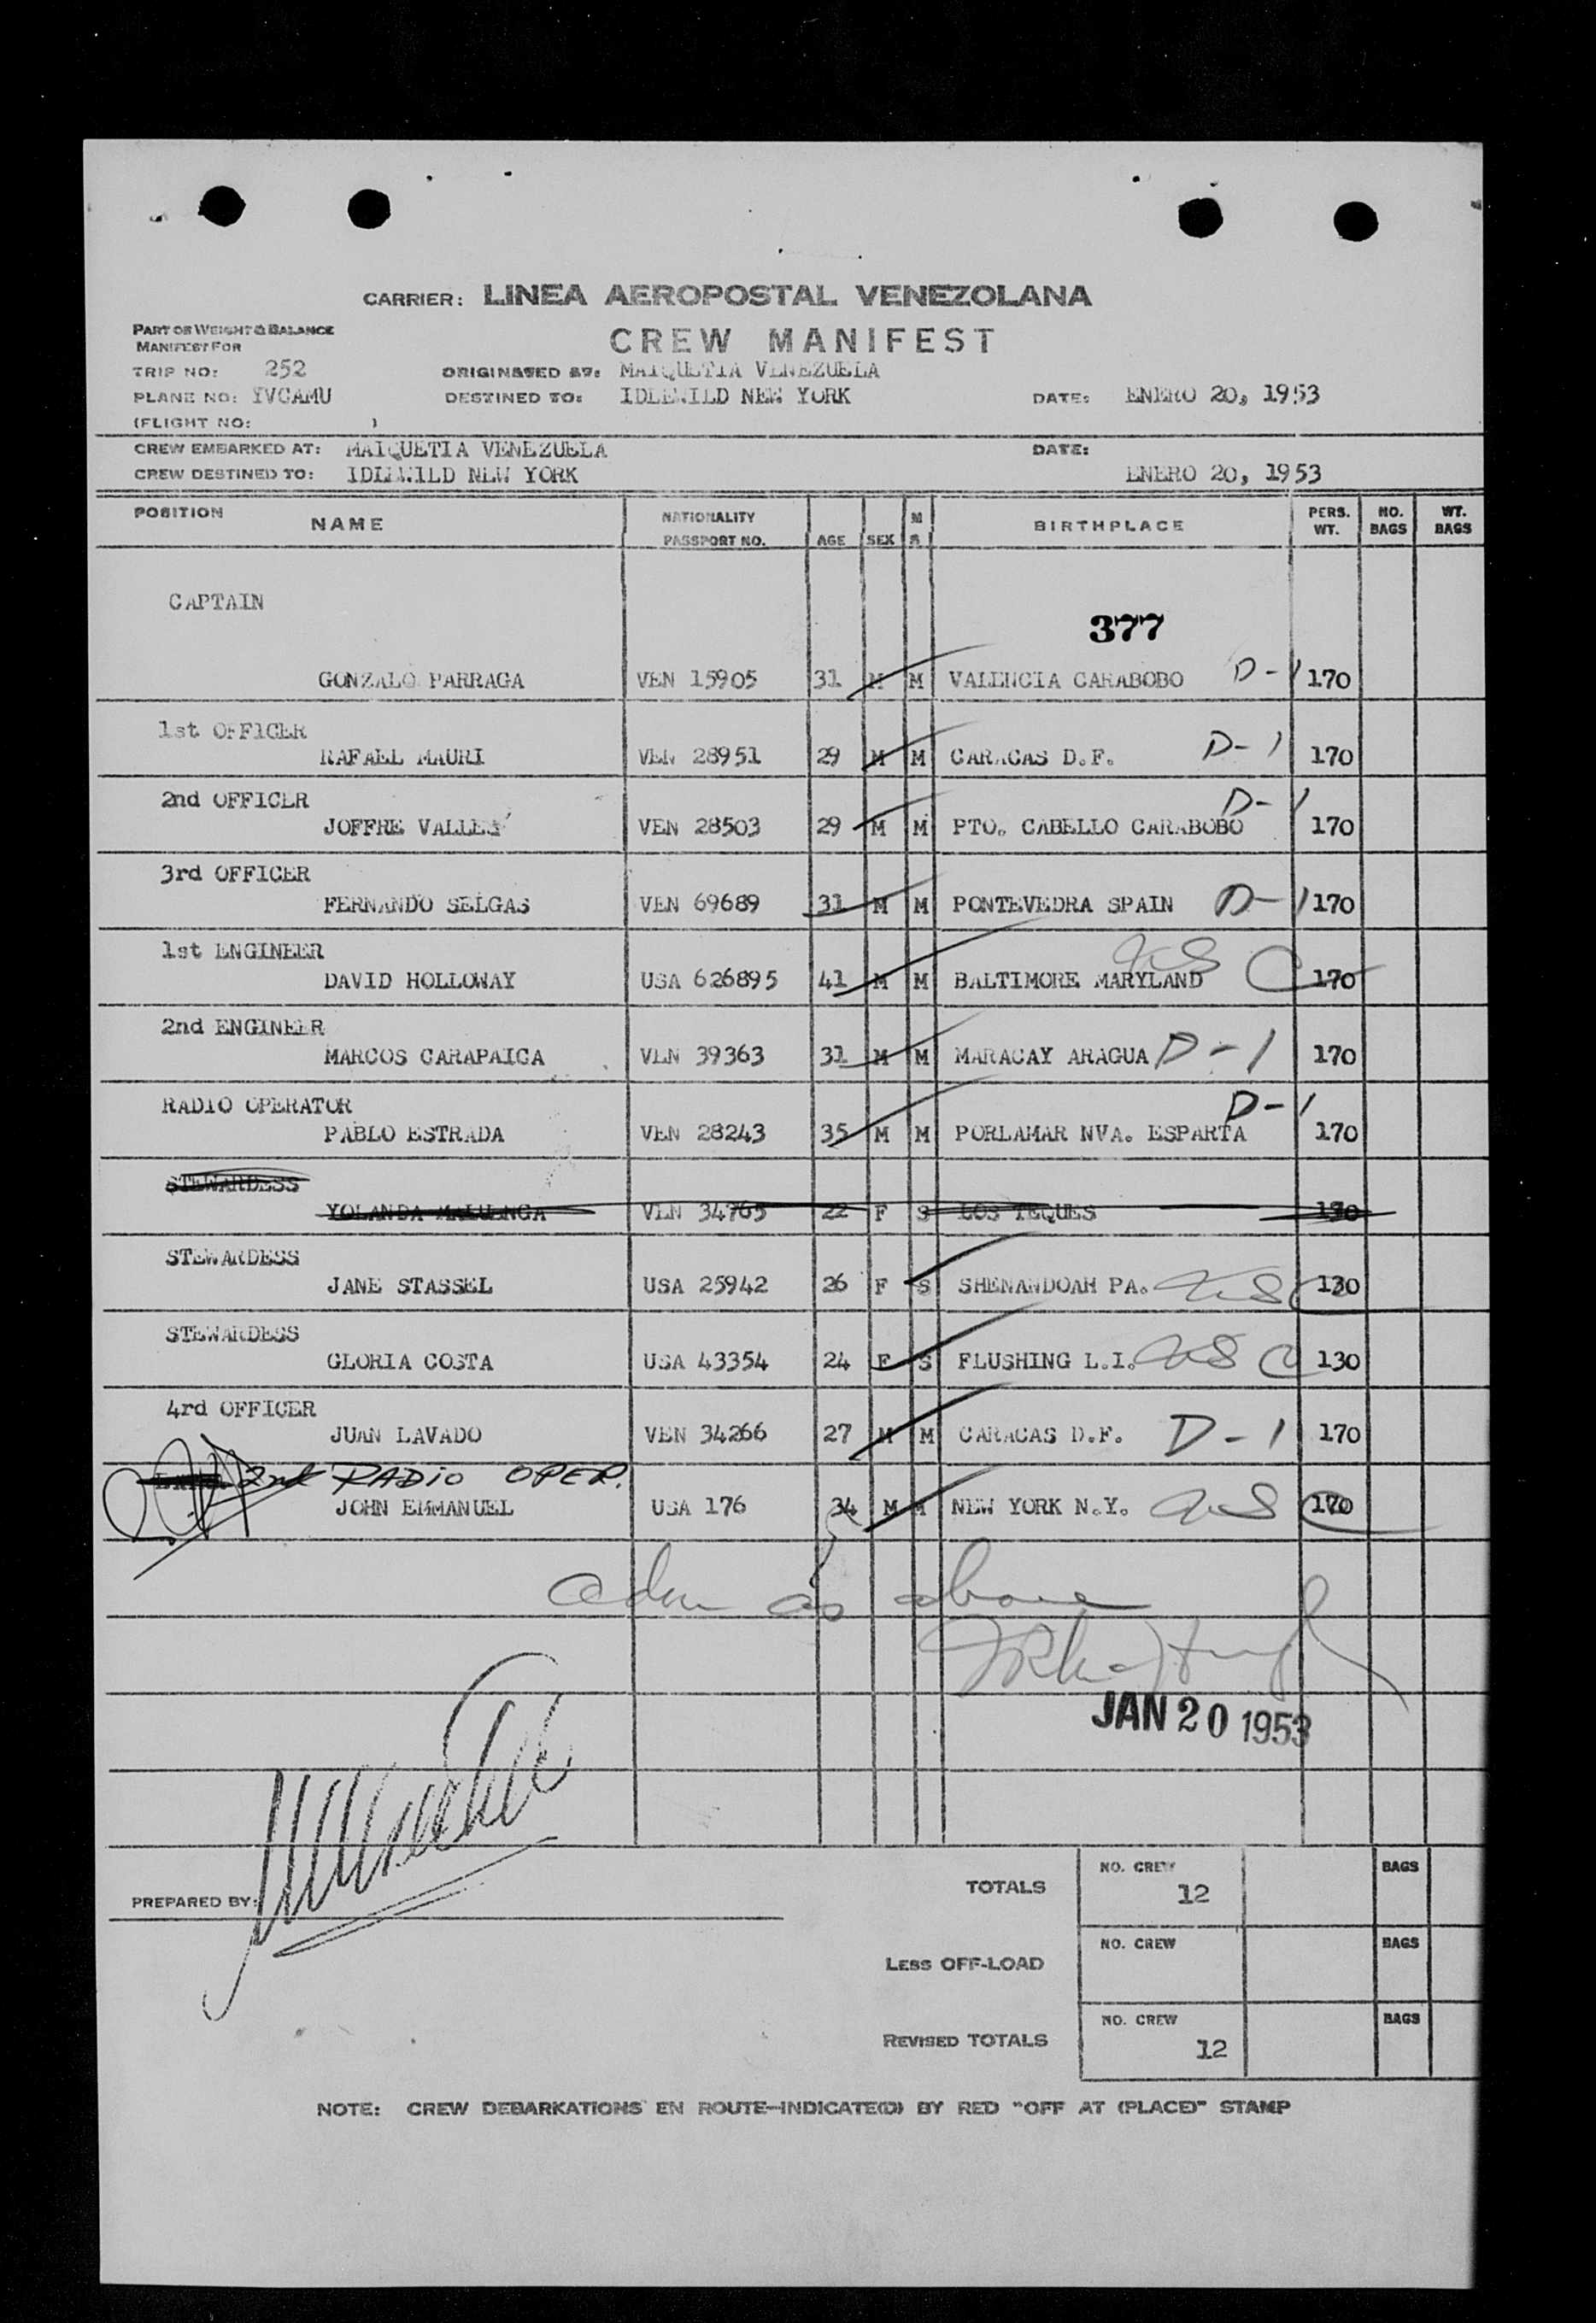 CARRIER: LINEA AEROPOSTAL VENEZOLANA
PART OF WEIGHT & BALANCE
MANIFEST FOR
CREW MANIFEST
TRIP NO: 252 ORIGINATED AT: MAIQUETIA VENEZUELA
PLANE NO: YVCAMU DESTINED TO: IDLEWILD NEW YORK DATE: ENERO 20, 1953
(FLIGHT NO: )
CREW EMBARKED AT: MAIQUETIA VENEZUELA DATE:
CREW DESTINED TO: IDLEWILD NEW YORK ENERO 20, 1953
POSITION NAME NATIONALITY PASSPORT NO. AGE SEX M S BIRTHPLACE PERS. WT. NO. BAGS WT. BAGS
CAPTAIN
377
GONZALO PARRAGA VEN 15905 31 M M VALENCIA CARABOBO D-1 170
1st OFFICER
RAFAEL MAURI VEN 28951 29 M M CARACAS D.F. D-1 170
2nd OFFICER
JOFFRE VALLES VEN 28503 29 M M PTO. CABELLO CARABOBO D-1 170
3rd OFFICER
FERNANDO SELGAS VEN 69689 31 M M PONTEVEDRA SPAIN D-1 170
1st ENGINEER
DAVID HOLLOWAY USA 626895 41 M M BALTIMORE MARYLAND US C 170
2nd ENGINEER
MARCOS CARAPAICA VEN 39363 31 M M MARACAY ARAGUA D-1 170
RADIO OPERATOR
PABLO ESTRADA VEN 28243 35 M M PORLAMAR NVA. ESPARTA D-1 170
STEWARDESS
YOLANDA MALUENGA VEN 34765 22 F S LOS TEQUES
STEWARDESS
JANE STASSEL USA 25942 26 F S SHENANDOAH PA. US C 130
STEWARDESS
GLORIA COSTA USA 43354 24 F S FLUSHING L.I. US C 130
4rd OFFICER
JUAN LAVADO VEN 34266 27 M M CARACAS D.F. D-1 170
2nd RADIO OPER.
JOHN EMMANUEL USA 176 34 M M NEW YORK N.Y. US C 170
adm as above
JAN 20 1953
PREPARED BY:
TOTALS NO. CREW 12 BAGS
LESS OFF-LOAD NO. CREW BAGS
REVISED TOTALS NO. CREW 12 BAGS
NOTE: CREW DEBARKATIONS EN ROUTE—INDICATE(D) BY RED "OFF AT (PLACE)" STAMP